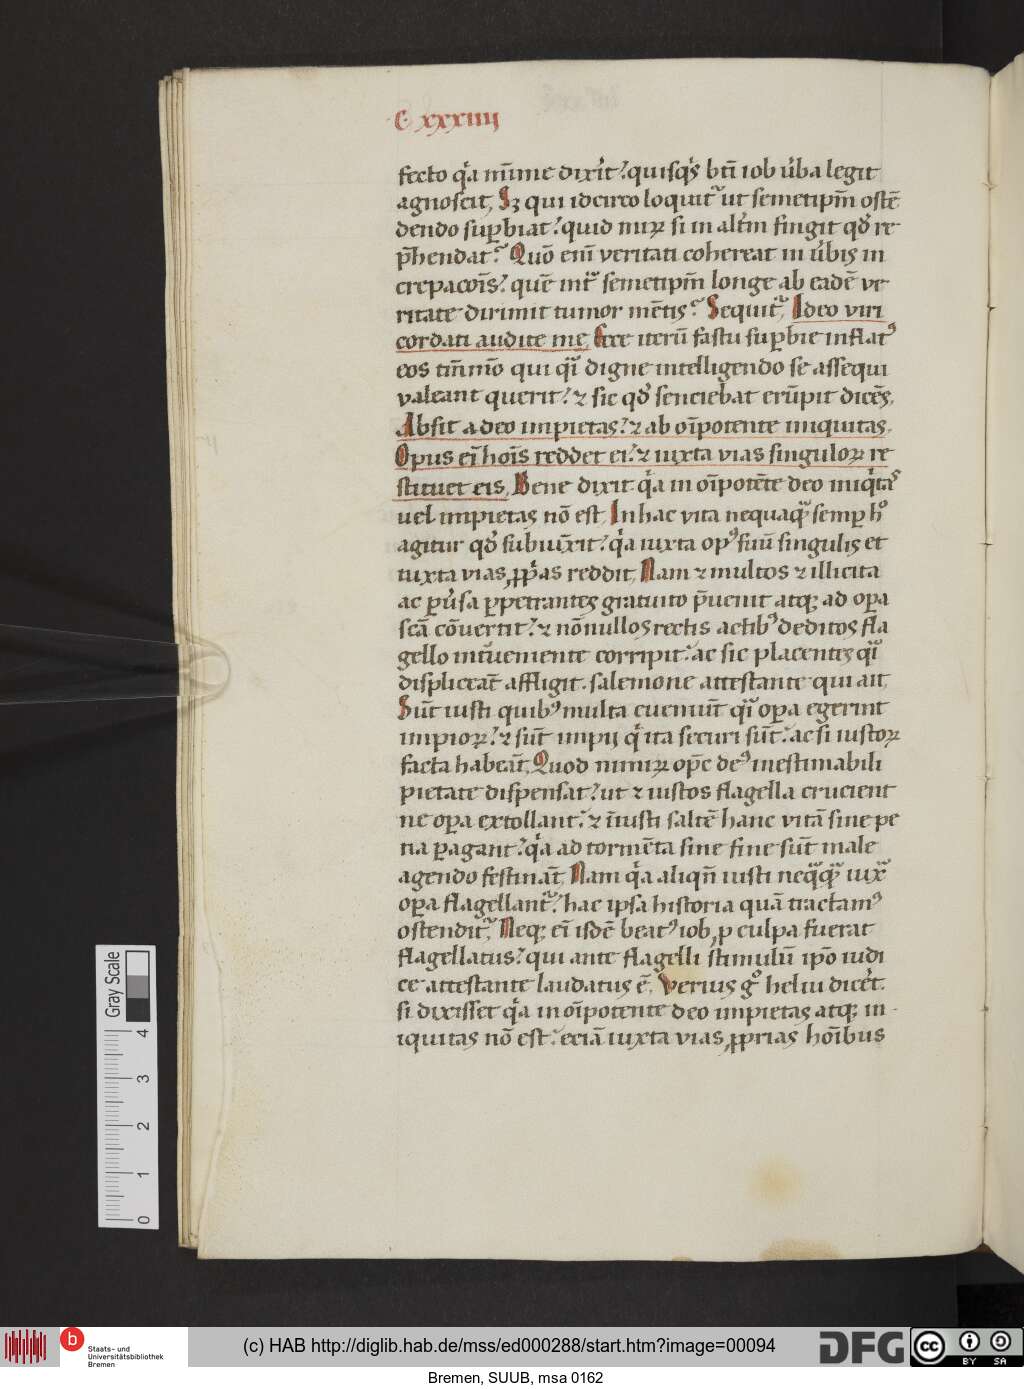 C xxxiiij
fecto qͥa mīme dixͥit? quisqͥs btī iob vͥba legit
agnoscit, Sꝫ qui idcirco loquit᷑ ut semetipm̄ ostē
dendo suꝑbiat? quid miꝝ si in alt̄m fingit qd̓ re
p̄hendat? Quō enī veritati cohereat in v̓bis in
crepacōis? quē int᷑ semetipm̄ longe ab eadē ve
ritate dirimit tumor mētis? Sequit᷑, Ideo viri
cordati audite me, Ecce iterū fastu suꝑbie inflatꝰ
eos tm̄mō qui q᷑ digne intelligendo se assequi
valeant querit? ⁊ sic qd̓ senciebat erūpit dicēs,
Absit a deo impietas? ⁊ ab oīpotente iniquitas.
Opus eī hoīs reddet ei? ⁊ iuxta vias singuloꝝ re
stituet eis, Bene dixit qͥa in oīpotēte deo iniqͥtas
uel impietas nō est, In hac vita nequaq᷑ semꝑ hͦ
agitur qd̓ subiūxit? qͥa iuxta opꝰ suū singulis et
iuxta vias ꝓpͥas reddit, Nam ⁊ multos ⁊ illicita
ac ꝑu̓sa ꝑpetrantes gratuito p̄uenit atqꝫ ad oꝑa
scā cōuertit? ⁊ nōnullos rectis actibꝰ deditos fla
gello int̓ueniente corripit? ac sic placentes q᷑
displiceāt affligit. salemone attestante qui ait,
Sūt iusti quibꝰ multa eueniūt q᷑ oꝑa egerint
impioꝝ? ⁊ sūt impij qͥ ita securi sūt? ac si iustoꝝ
facta habeāt, Quod nimiꝝ opͨe deꝰ inestimabili
pietate dispensat? ut ⁊ iustos flagella crucient
ne oꝑa extollant? ⁊ īiusti saltē hanc vitā sine pe
na ꝑagant? qͥa ad tormēta sine fine sūt male
agendo festināt, Nam qͥa aliqn̄ iusti neq᷑q᷑ iux᷑
oꝑa flagellant᷑? hac ipsa historia quā tractamꝰ
ostendit᷑, Neqꝫ eī isdē beatꝰ iob ꝓ culpa fuerat
flagellatus? qui ante flagelli stimulū ipō iudi
ce attestante laudatus ē, Verius gͦ heliu dicͥet.
si dixisset qͥa in oīpotente deo impietas atqꝫ in
iquitas nō est? eciā iuxta vias ꝓprias hoībus
Gray Scale
4
3
2
1
0
b
Staats- und
Universitätsbibliothek
Bremen
(c) HAB http://diglib.hab.de/mss/ed000288/start.htm?image=00094
DFG
cc
BY SA
Bremen, SUUB, msa 0162